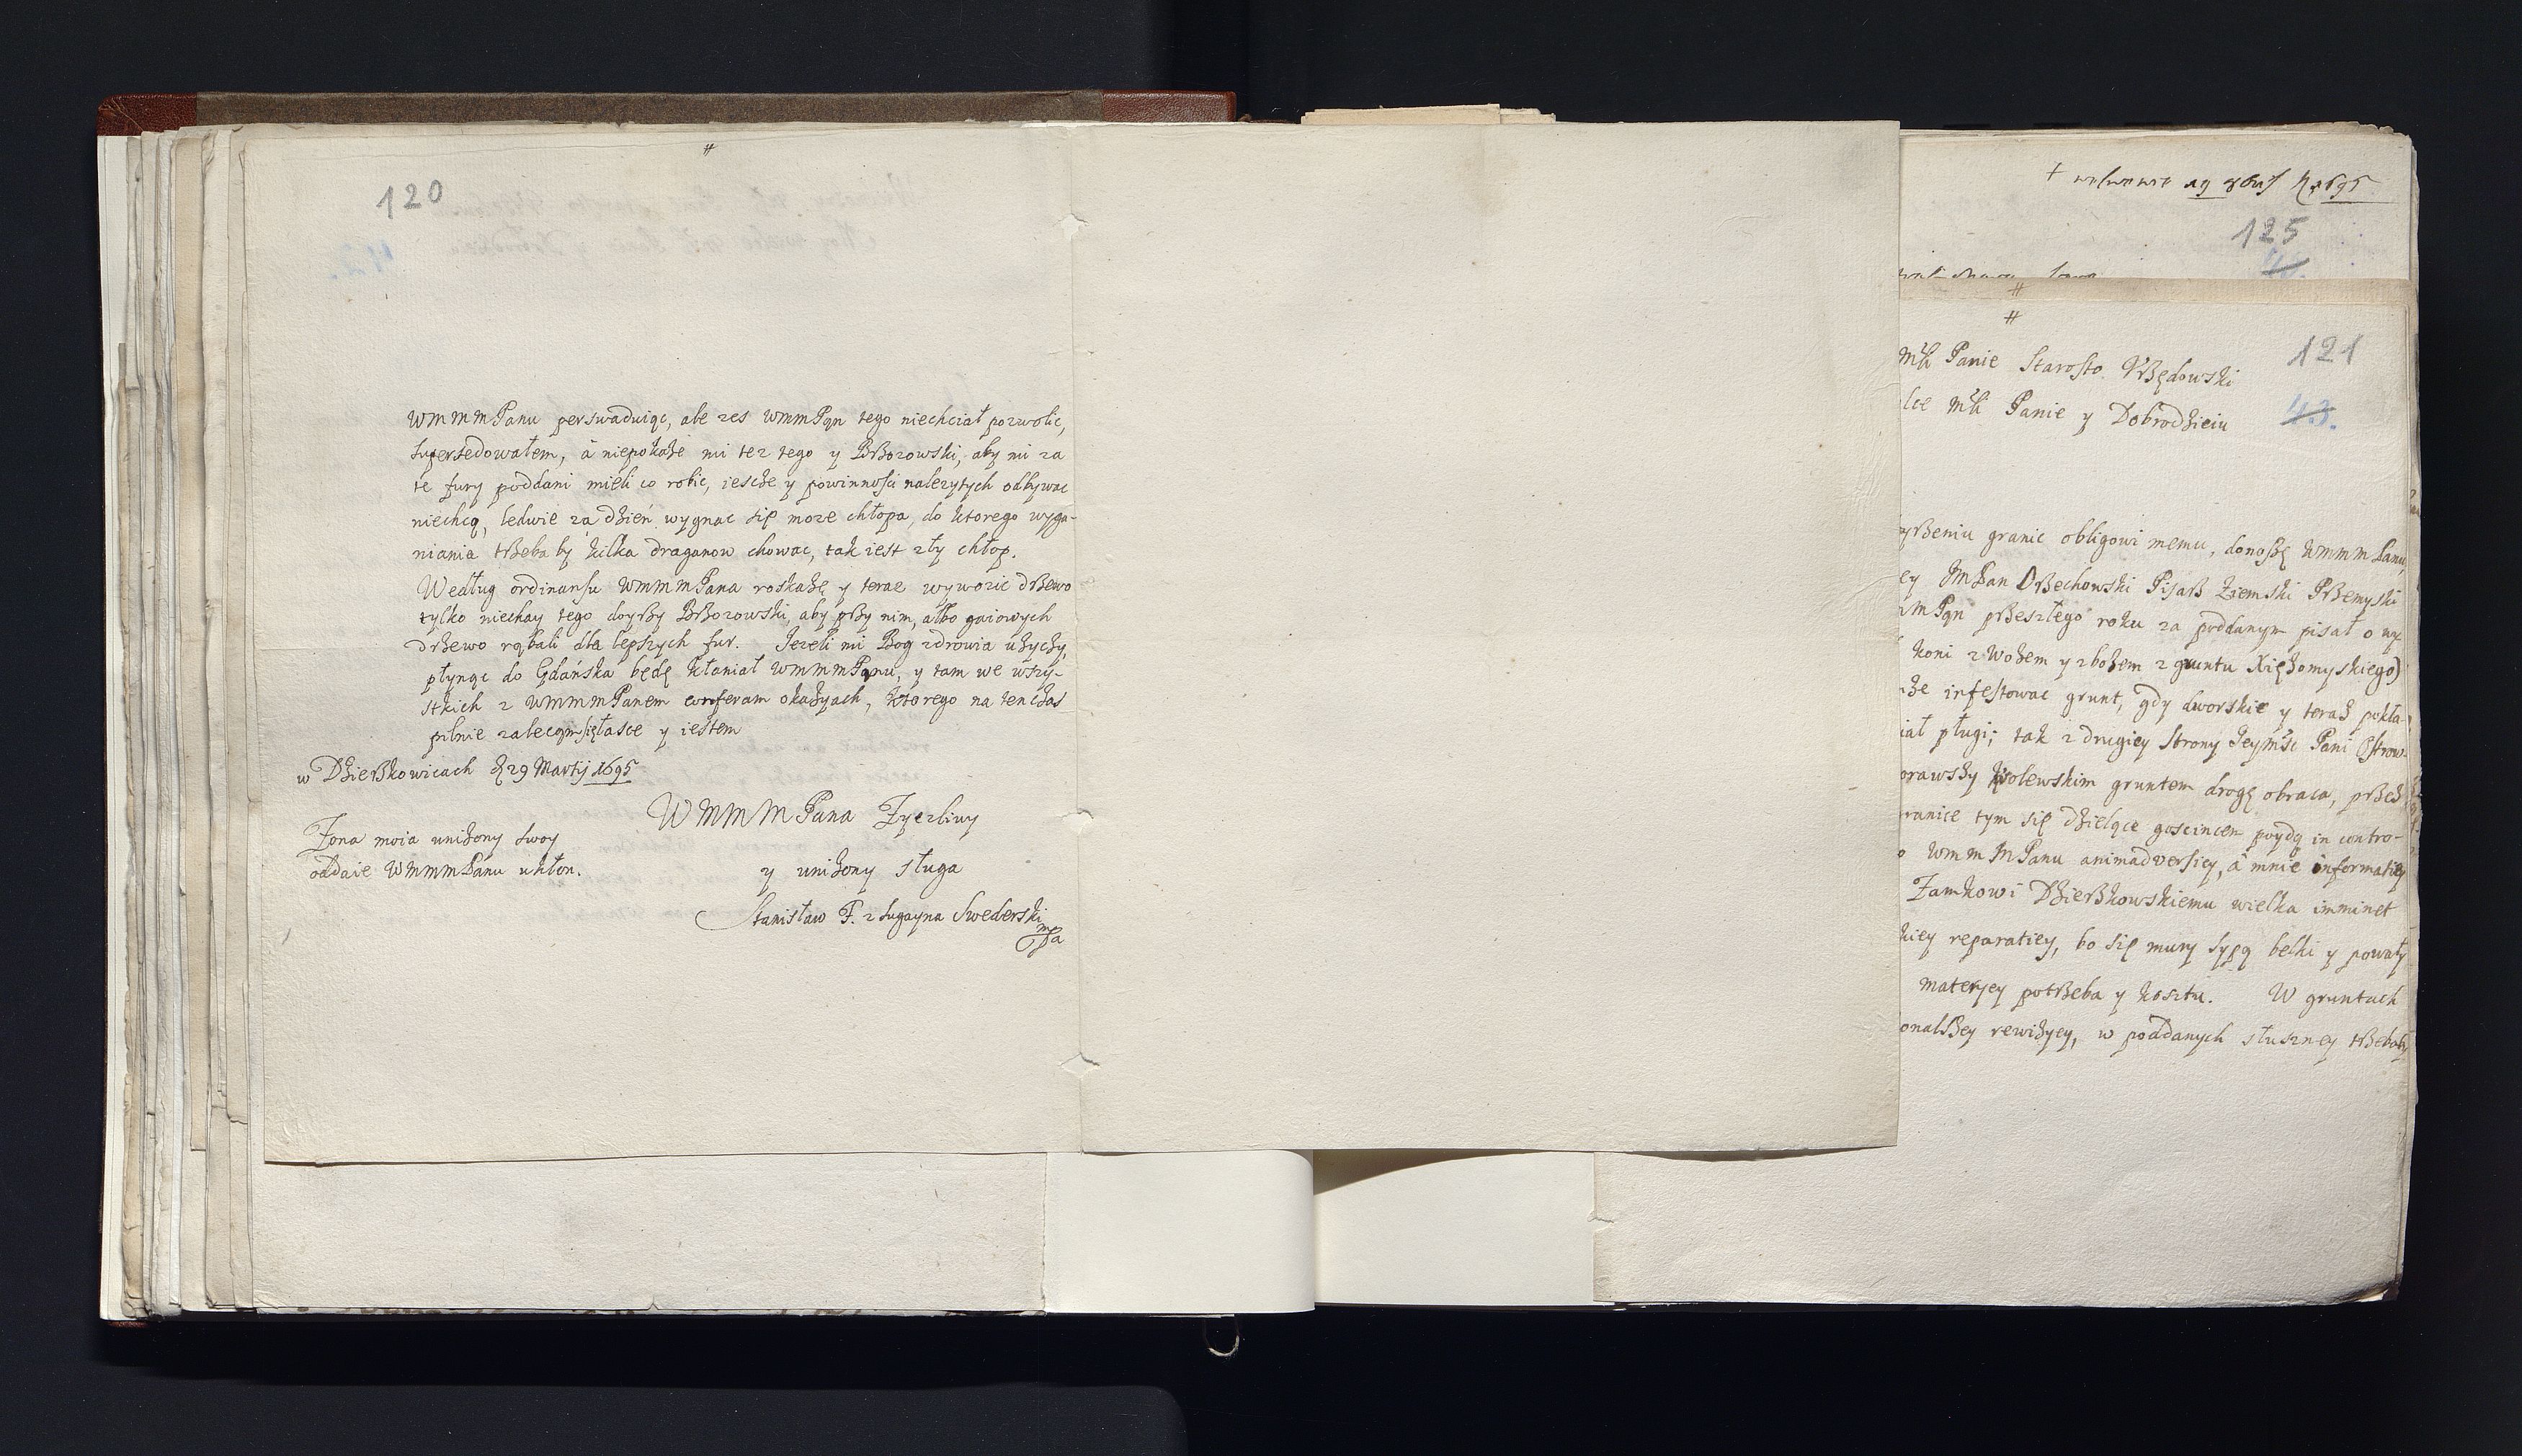 #
120
WMMMPanu perswaduiąc, ale zes WMMPan tego niechciał pozwolic,
supersedowałem, à niepokaże mi tez tego y Brzozowski, aby mi za
te fury poddani mieli co robic, iescże y powinnosci nalezytych odbywac
niechcą, ledwie za dżień wygnac się moze chłopa, do ktorego wyga-
niania trżeba by kilka draganow chowac, tak iest zły chłop.
Według ordinansu WMMMPana roskażę y teraz wywozic drżewo
tylko niechay tego doyrży Brżozowski, aby prży nim, albo gaiowych
drżewo rąbali dla lepszych fur. Jezeli mi Bog zdrowia użycży,
płynąc do Gdańska będę kłaniał WMMMPanu, y tam we wszy-
stkich z WMMMPanem conferam okażyach, ktorego na tencżas
pilnie zalecam się łasce y iestem
w Dżierżkowicach d 29 Martij 1695
WMMMPana Zyczliwy
Zona moia uniżony swoy
oddaie WMMMPanu ukłon.
y uniżony sługa
Stanisław F. z Lugayna Swederski
mpa
+ 1695
125
#
#
121
Mśći Panie Starosto Vrżędowski
Mśći Panie y Dobrodżieiu
43.
granic obligowi memu, donoszę WMMMPanu,
JMPan Orżechowski Pisarż Ziemski Prżemyski
prżeszłego roku za poddanym pisał o wy
koni z wożem y zbożem z gruntu Xiężomyskiego)
infestowac grunt, gdy dworskie y teraż pokła-
pługi; tak z drugiey strony Jeymśc Pani Ostrow-
krolewskim gruntem drogę obraca, prżeż
tym się dżielące goscincem poydą in contro-
WMMMPanu animadversiey, à mnie informatiey
Zamkowi Dżierżkowskiemu wielka imminet
reparatiey, bo się mury sypą belki y powały
materyey potrżeba y kosztu. W gruntach
rewiżyey, w poddanych słuszney trżebaby